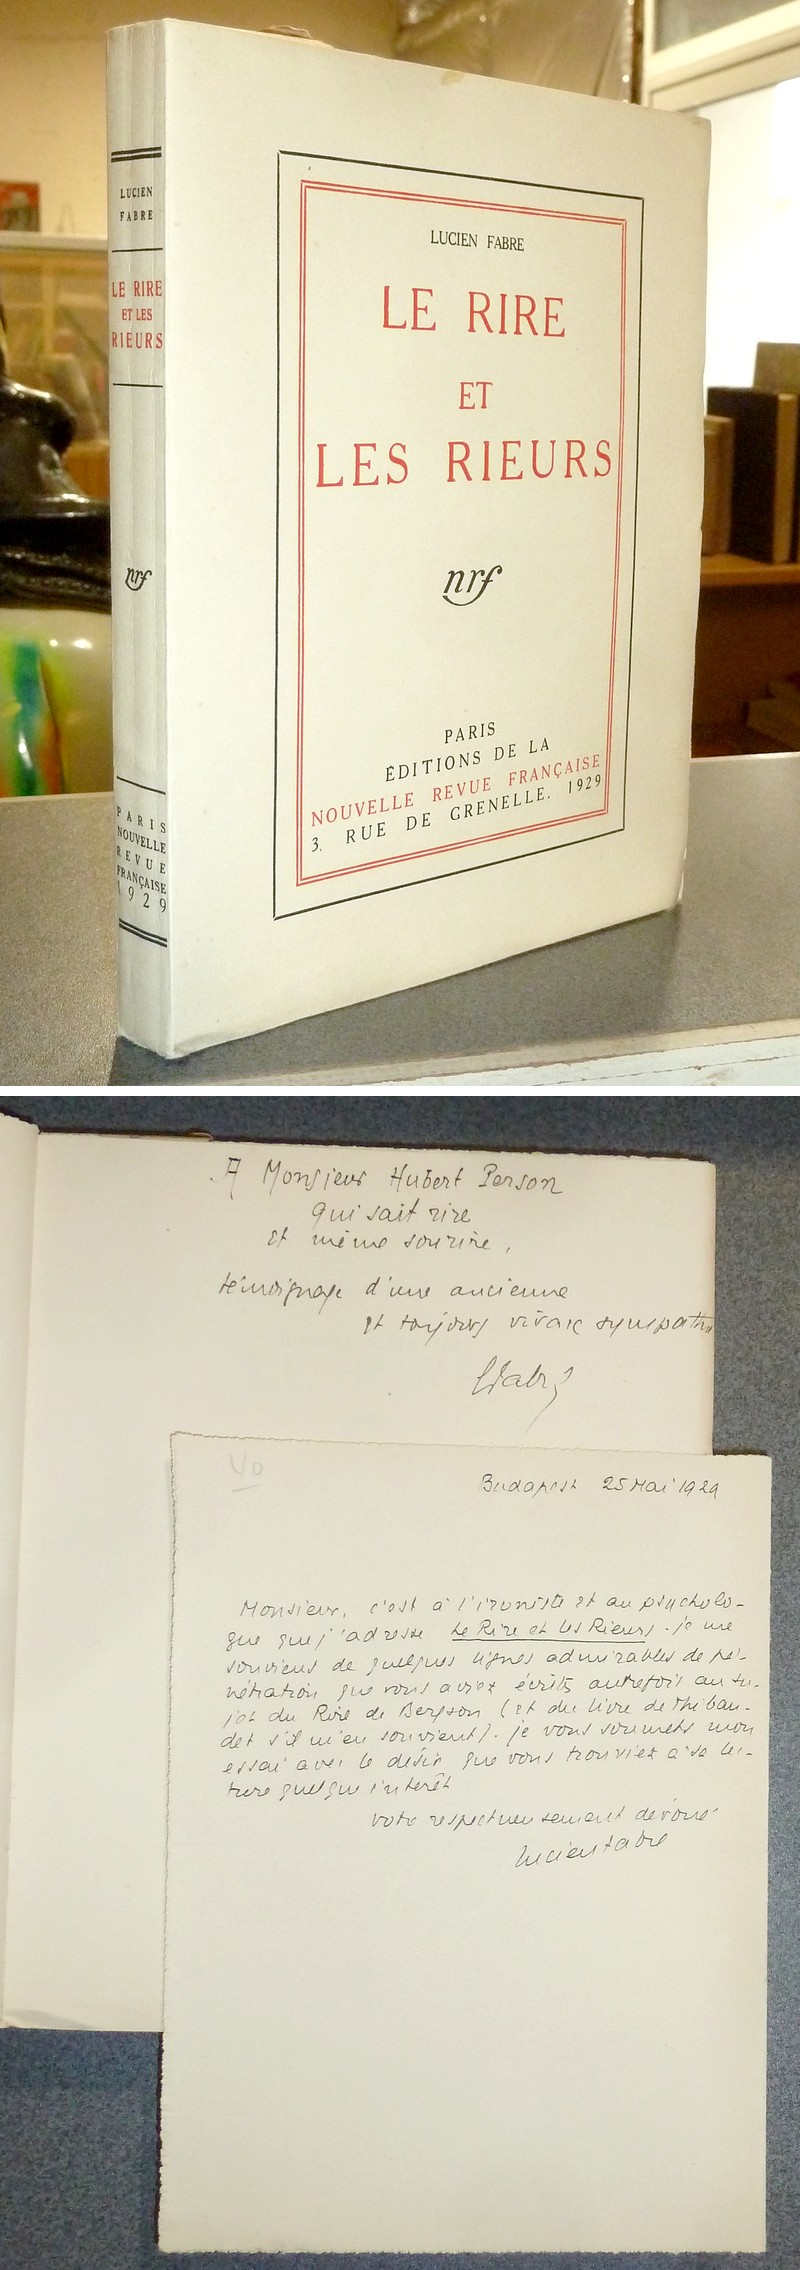 LUCIEN
FABRE
LE RIRE
ET LES
RIEURS
nrf
PARIS
NOUVELLE
REVUE
FRANÇAISE
1929
LUCIEN FABRE
LE RIRE
ET
LES RIEURS
nrf
PARIS
ÉDITIONS DE LA
NOUVELLE REVUE FRANÇAISE
3, RUE DE GRENELLE. 1929
A Monsieur Hubert Person
qui sait rire
et même sourire,
témoignage d'une ancienne
et toujours vivace sympathie
LFabre
40
Budapest 25 Mai 1929
Monsieur, c'est à l'ironiste et au psycholo-
gue que j'adresse Le Rire et les Rieurs. je me
souviens de quelques lignes admirables de pé-
nétration que vous aviez écrites autrefois au su-
jet du Rire de Bergson (et du livre de Thibau-
det s'il m'en souvient). je vous soumets mon
essai avec le désir que vous trouviez à sa lec-
ture quelque intérêt
votre respectueusement dévoué
Lucien Fabre